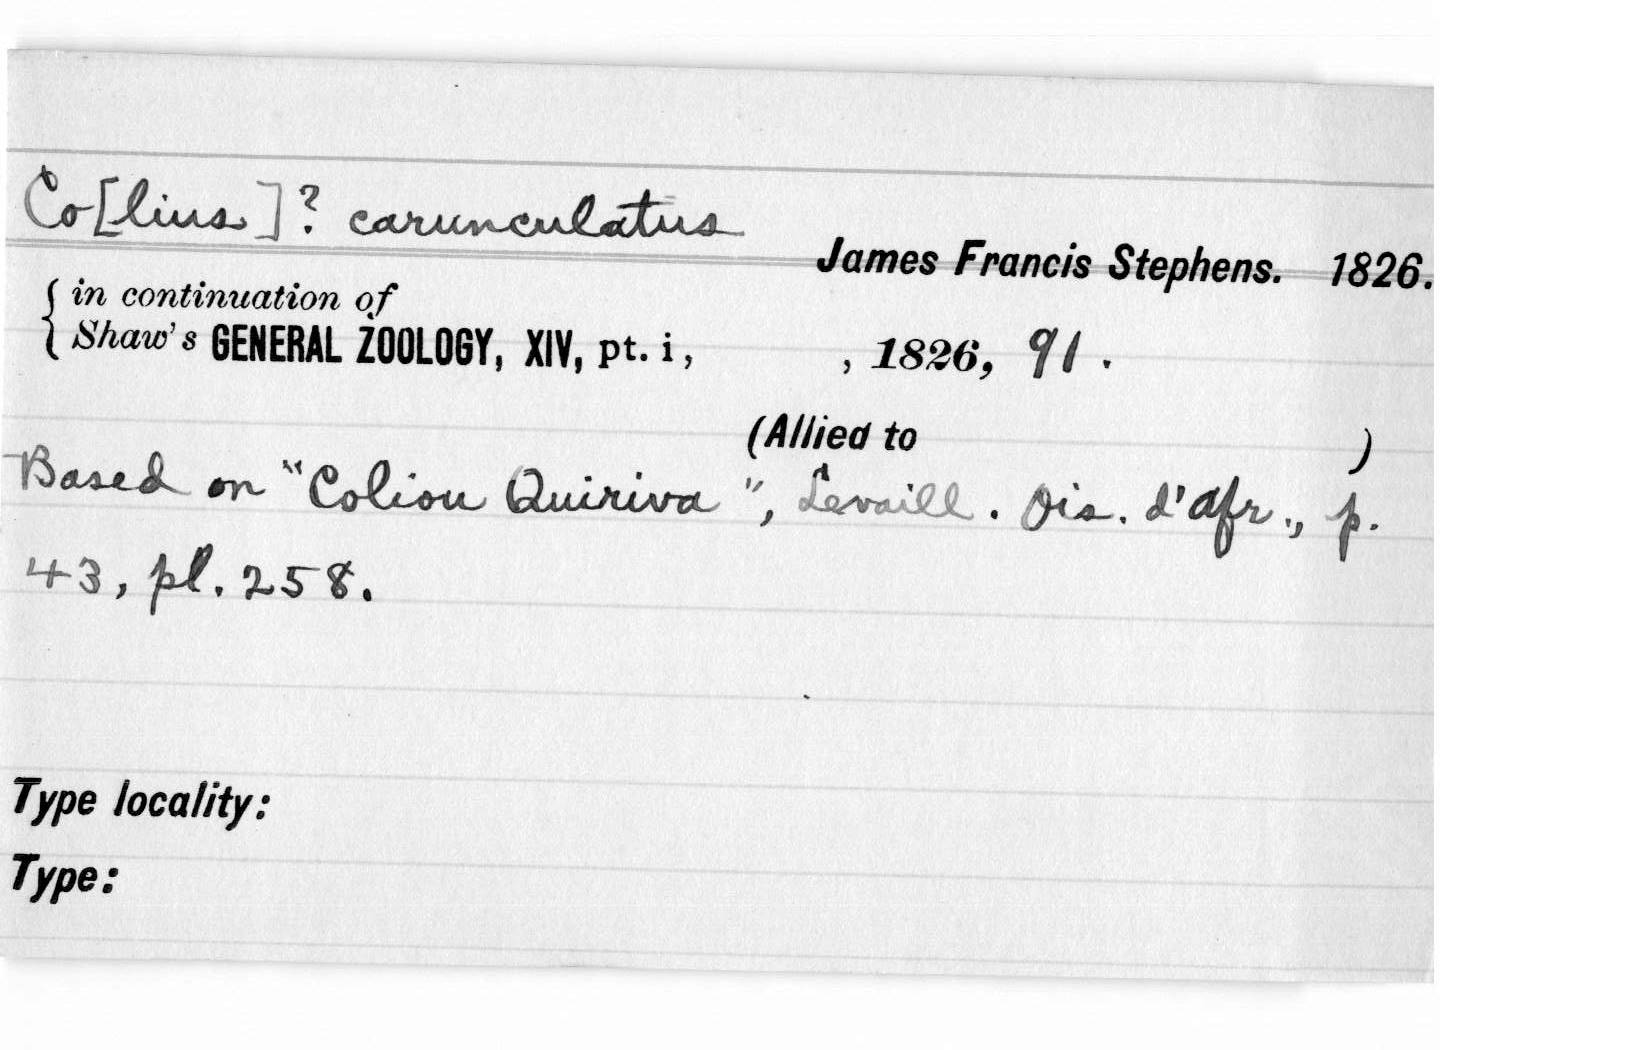 Co[lius.]? carunculatus
James Francis Stephens. 1826.
in continuation of
Shaw's GENERAL ZOOLOGY, XIV, pt. i, , 1826, 91.
(Allied to )
Based on "Coliou Quiriva", Levaill. Ois. d'Afr., p.
43, pl. 258.
Type locality:
Type: